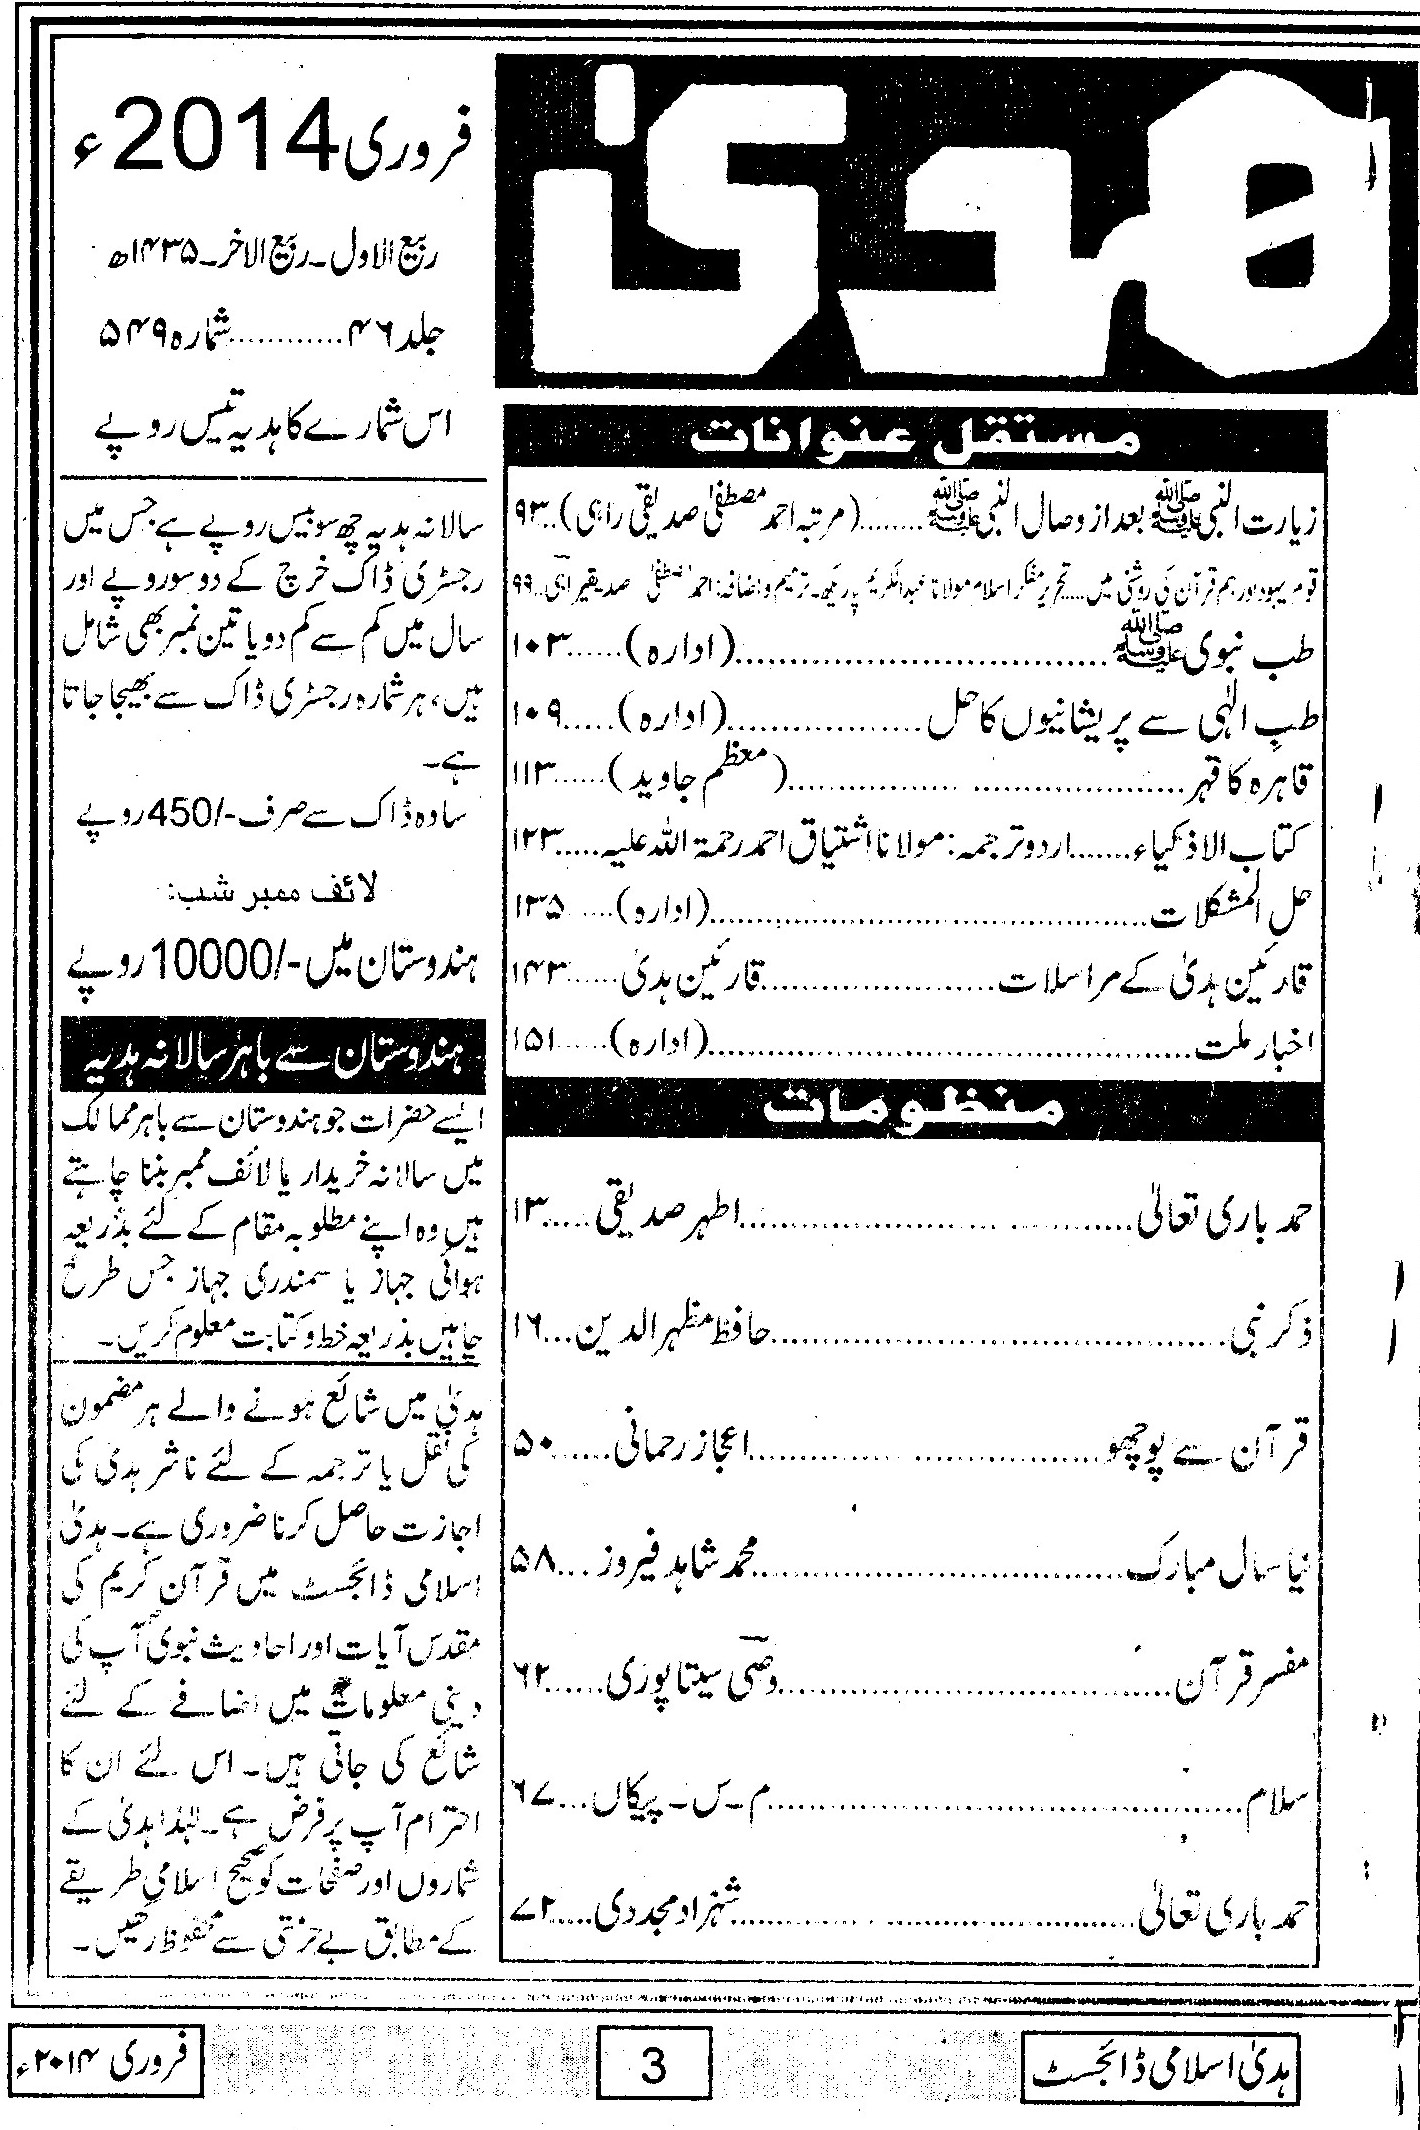 ھدیٰ
مستقل عنوانات
زیارت النبی ﷺ بعد از وصال النبی ﷺ ........(مرتبہ احمد مصطفیٰ صدیقی راہی)..۹۳
قوم یہود اور ہم قرآن کی روشنی میں.....تحریر مفکر اسلام مولانا عبدالکریم پاریکھ۔ترمیم و اضافہ: احمد مصطفیٰ صدیقی راہی..۹۹
طب نبوی ﷺ ..................................(ادارہ)......۱۰۳
طبِ الٰہی سے پریشانیوں کا حل..................(ادارہ).....۱۰۹
قاہرہ کا قہر..................................(معظم جاوید)......۱۱۳
کتاب الاذکیاء.......اردو ترجمہ: مولانا اشتیاق احمد رحمۃ اللہ علیہ.....۱۲۳
حل المشکلات........................................(ادارہ)......۱۳۵
قارئین ہدیٰ کے مراسلات......................قارئین ہدیٰ......۱۴۳
اخبار ملت............................................(ادارہ)......۱۵۱
منظومات
حمد باری تعالیٰ..................................اطہر صدیقی.....۱۳
ذکر نبی..........................................حافظ مظہر الدین...۱۶
قرآن سے پوچھو................................اعجاز رحمانی......۵۰
نیا سال مبارک..................................محمد شاہد فیروز...۵۸
مفسر قرآن....................................وصی سیتاپوری......۶۲
سلام............................................م۔س۔پیکاں...۶۷
حمد باری تعالیٰ..................................شہزاد مجددی.....۷۲
فروری 2014ء
ربیع الاول۔ربیع الآخر۔۱۴۳۵ھ
جلد ۴۶............شمارہ ۵۴۹
اس شمارے کا ہدیہ تیس روپے
سالانہ ہدیہ چھ سو بیس روپے ہے جس میں
رجسٹری ڈاک خرچ کے دو سو روپے اور
سال میں کم سے کم دو یا تین نمبر بھی شامل
ہیں، ہر شمارہ رجسٹری ڈاک سے بھیجا جاتا
ہے۔
سادہ ڈاک سے صرف -/450 روپے
لائف ممبر شب:
ہندوستان میں -/10000 روپے
ہندوستان سے باہر سالانہ ہدیہ
ایسے حضرات جو ہندوستان سے باہر ممالک
میں سالانہ خریدار یا لائف ممبر بننا چاہتے
ہیں وہ اپنے مطلوبہ مقام کے لئے بذریعہ
ہوائی جہاز یا سمندری جہاز جس طرح
چاہیں بذریعہ خط و کتابت معلوم کریں۔
ہدیٰ میں شائع ہونے والے ہر مضمون
کی نقل یا ترجمہ کے لئے ناشر ہدیٰ کی
اجازت حاصل کرنا ضروری ہے۔ہدیٰ
اسلامی ڈائجسٹ میں قرآن کریم کی
مقدس آیات اور احادیث نبوی آپ کی
دینی معلومات میں اضافے کے لئے
شائع کی جاتی ہیں۔اس لئے ان کا
احترام آپ پر فرض ہے۔لہٰذا ہدیٰ کے
شماروں اور صفحات کو صحیح اسلامی طریقے
کے مطابق بے حرمتی سے محفوظ رکھیں۔
ہدیٰ اسلامی ڈائجسٹ
3
فروری ۲۰۱۴ء